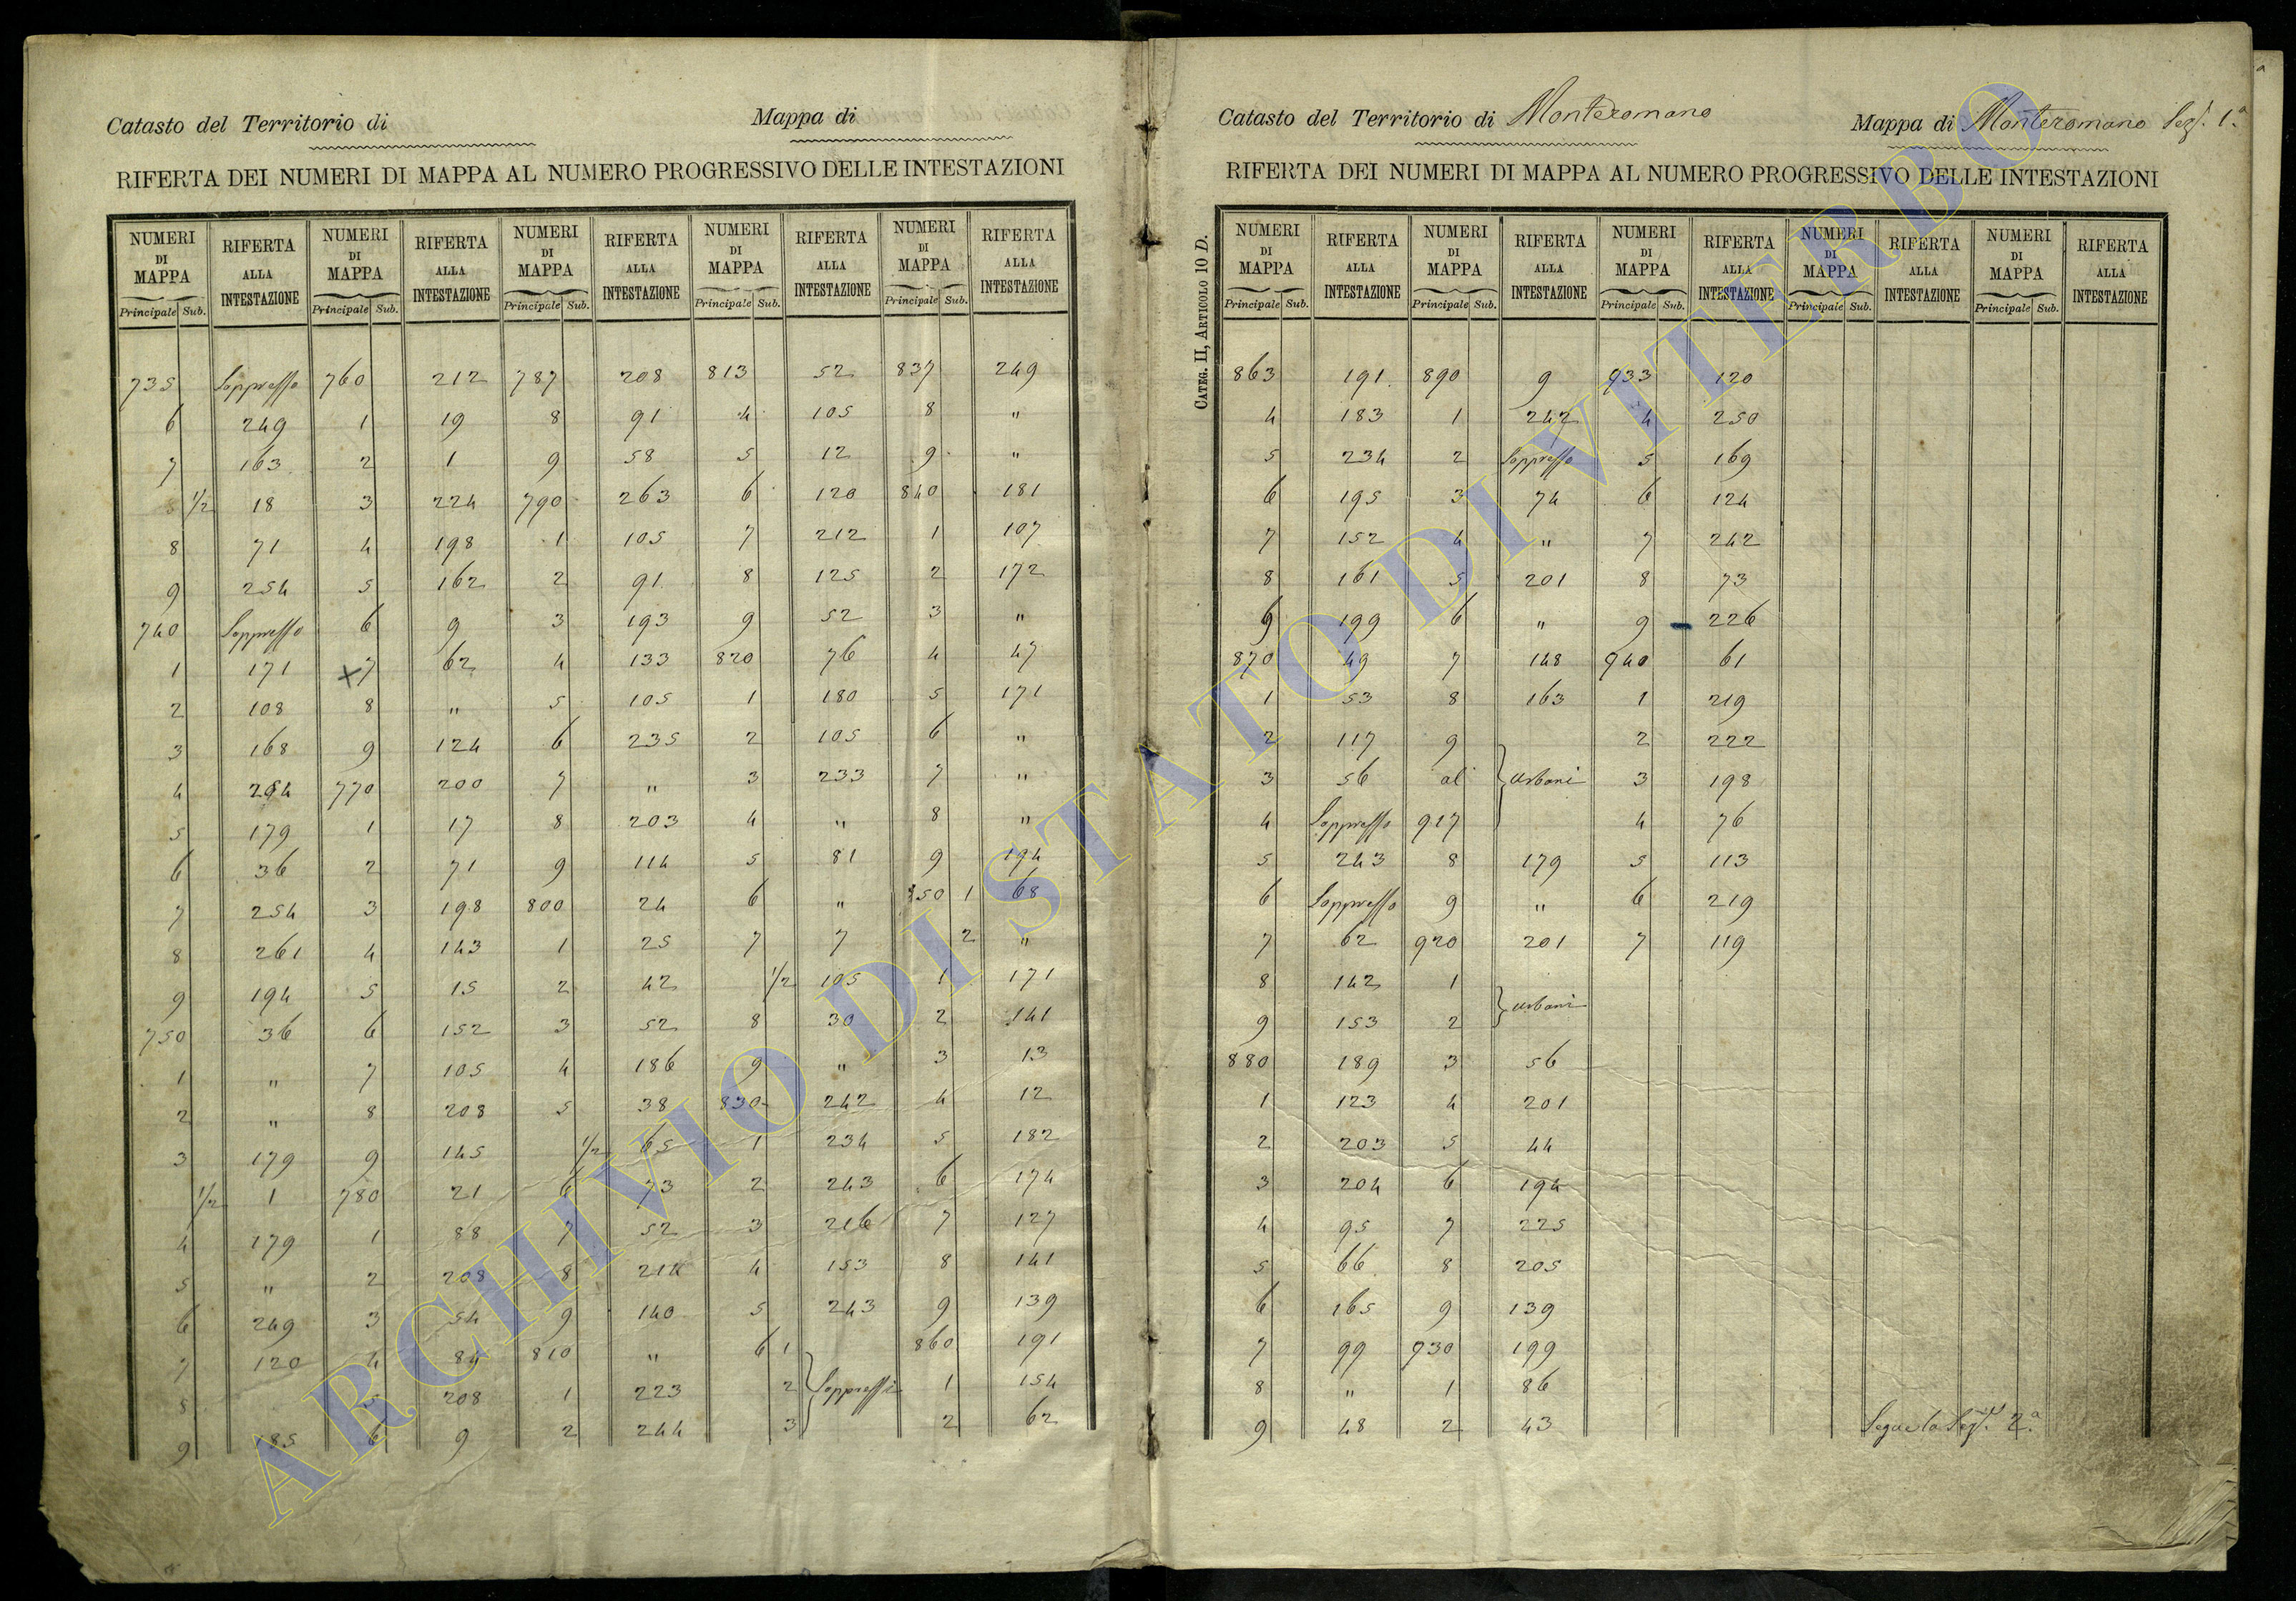 Catasto del Territorio di
Mappa di
RIFERTA DEI NUMERI DI MAPPA AL NUMERO PROGRESSIVO DELLE INTESTAZIONI
NUMERI DI MAPPA RIFERTA ALLA INTESTAZIONE NUMERI DI MAPPA RIFERTA ALLA INTESTAZIONE NUMERI DI MAPPA RIFERTA ALLA INTESTAZIONE NUMERI DI MAPPA RIFERTA ALLA INTESTAZIONE NUMERI DI MAPPA RIFERTA ALLA INTESTAZIONE
Principale Sub. Principale Sub. Principale Sub. Principale Sub. Principale Sub.
735 Soppresso 760 212 787 208 813 52 837 249
6 249 1 19 8 91 4 105 8 "
7 163 2 1 9 58 5 12 9 "
1/2 18 3 224 790 263 6 120 840 181
8 71 4 198 1 105 7 212 1 107
9 254 5 162 2 91 8 125 2 172
740 Soppresso 6 9 3 193 9 52 3 "
1 171 x7 62 4 133 820 76 4 47
2 108 8 " 5 105 1 180 5 171
3 168 9 124 6 235 2 105 6 "
4 254 770 200 7 " 3 233 7 "
5 179 1 17 8 203 4 " 8 "
6 36 2 71 9 114 5 81 9 194
7 254 3 198 800 24 6 " 850 1 68
8 261 4 143 1 25 7 7 2 "
9 194 5 15 2 42 1/2 105 1 171
750 36 6 152 3 52 8 30 2 141
1 " 7 105 4 186 9 " 3 13
2 " 8 208 5 38 830 242 4 12
3 179 9 145 1/2 65 1 234 5 182
1/2 1 780 21 6 73 2 243 6 174
4 179 1 88 7 52 3 216 7 127
5 " 2 208 8 214 4 153 8 141
6 249 3 54 9 140 5 243 9 139
7 120 4 84 810 " 6 1 860 191
8 5 208 1 223 2 Soppressi 1 154
9 185 6 9 2 244 3 2 62
Catasto del Territorio di Monteromano
Mappa di Monteromano Sez. 1.a
RIFERTA DEI NUMERI DI MAPPA AL NUMERO PROGRESSIVO DELLE INTESTAZIONI
CATEG. II, ARTICOLO 10 D.
NUMERI DI MAPPA RIFERTA ALLA INTESTAZIONE NUMERI DI MAPPA RIFERTA ALLA INTESTAZIONE NUMERI DI MAPPA RIFERTA ALLA INTESTAZIONE NUMERI DI MAPPA RIFERTA ALLA INTESTAZIONE NUMERI DI MAPPA RIFERTA ALLA INTESTAZIONE
Principale Sub. Principale Sub. Principale Sub. Principale Sub. Principale Sub.
863 191 890 9 933 120
4 183 1 242 4 250
5 234 2 Soppresso 5 169
6 195 3 74 6 124
7 152 4 " 7 242
8 161 5 201 8 73
9 199 6 " 9 226
870 49 7 148 940 61
1 53 8 163 1 219
2 117 9 2 222
3 56 al urbani 3 198
4 Soppresso 917 4 76
5 243 8 179 5 113
6 Soppresso 9 " 6 219
7 62 920 201 7 119
8 142 1
urbani
9 153 2
880 189 3 56
1 123 4 201
2 203 5 44
3 204 6 194
4 95 7 225
5 66 8 205
6 165 9 139
7 99 930 199
8 " 1 86
9 48 2 43
Segue la Sez. 2.a
ARCHIVIO DI STATO DI VITERBO